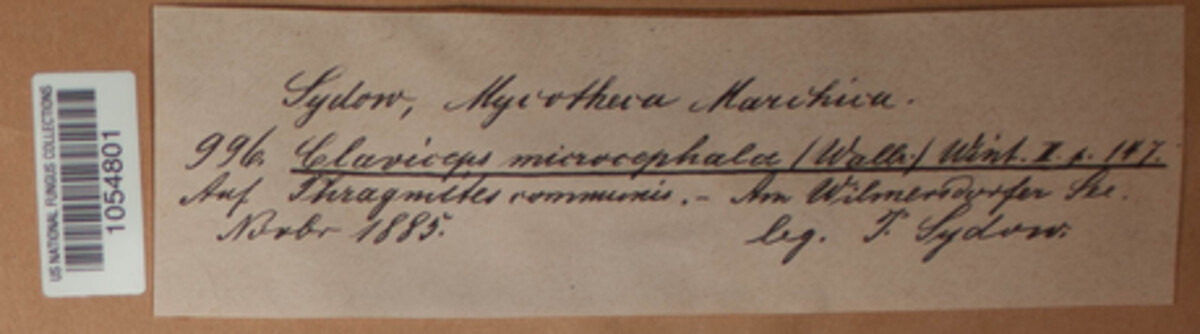 US NATIONAL FUNGUS COLLECTIONS
1054801
Sydow, Mycotheca Marchica.
996. Claviceps microcephala (Wallr.) Wint. II. p. 147.
Auf Phragmites communis. – Am Wilmersdorfer See.
Novbr 1885. leg. P. Sydow.